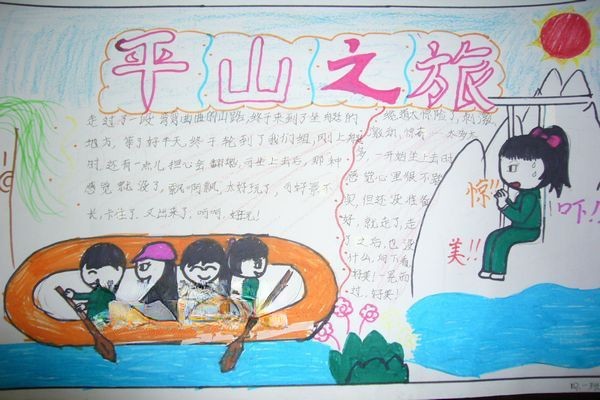 平山之旅
走过了一段弯弯曲曲的山路,终于来到了坐船的
地方,等了好半天,终于轮到了我们组,刚上船
时,还有一点儿担心会翻船,可坐上去后,那种
感觉就没了,飘啊飘,太好玩了,可好景不
长,卡住了,又出来了,啊啊,好玩!
缆道太惊险了,刺激
刺激,惊
一开始坐上去时
感觉心里很不
但还没准备
好,就走了,走
了之后,也没
什么,向下看
好美!一晃而
过,好美!
惊!!
吓!!
美!!